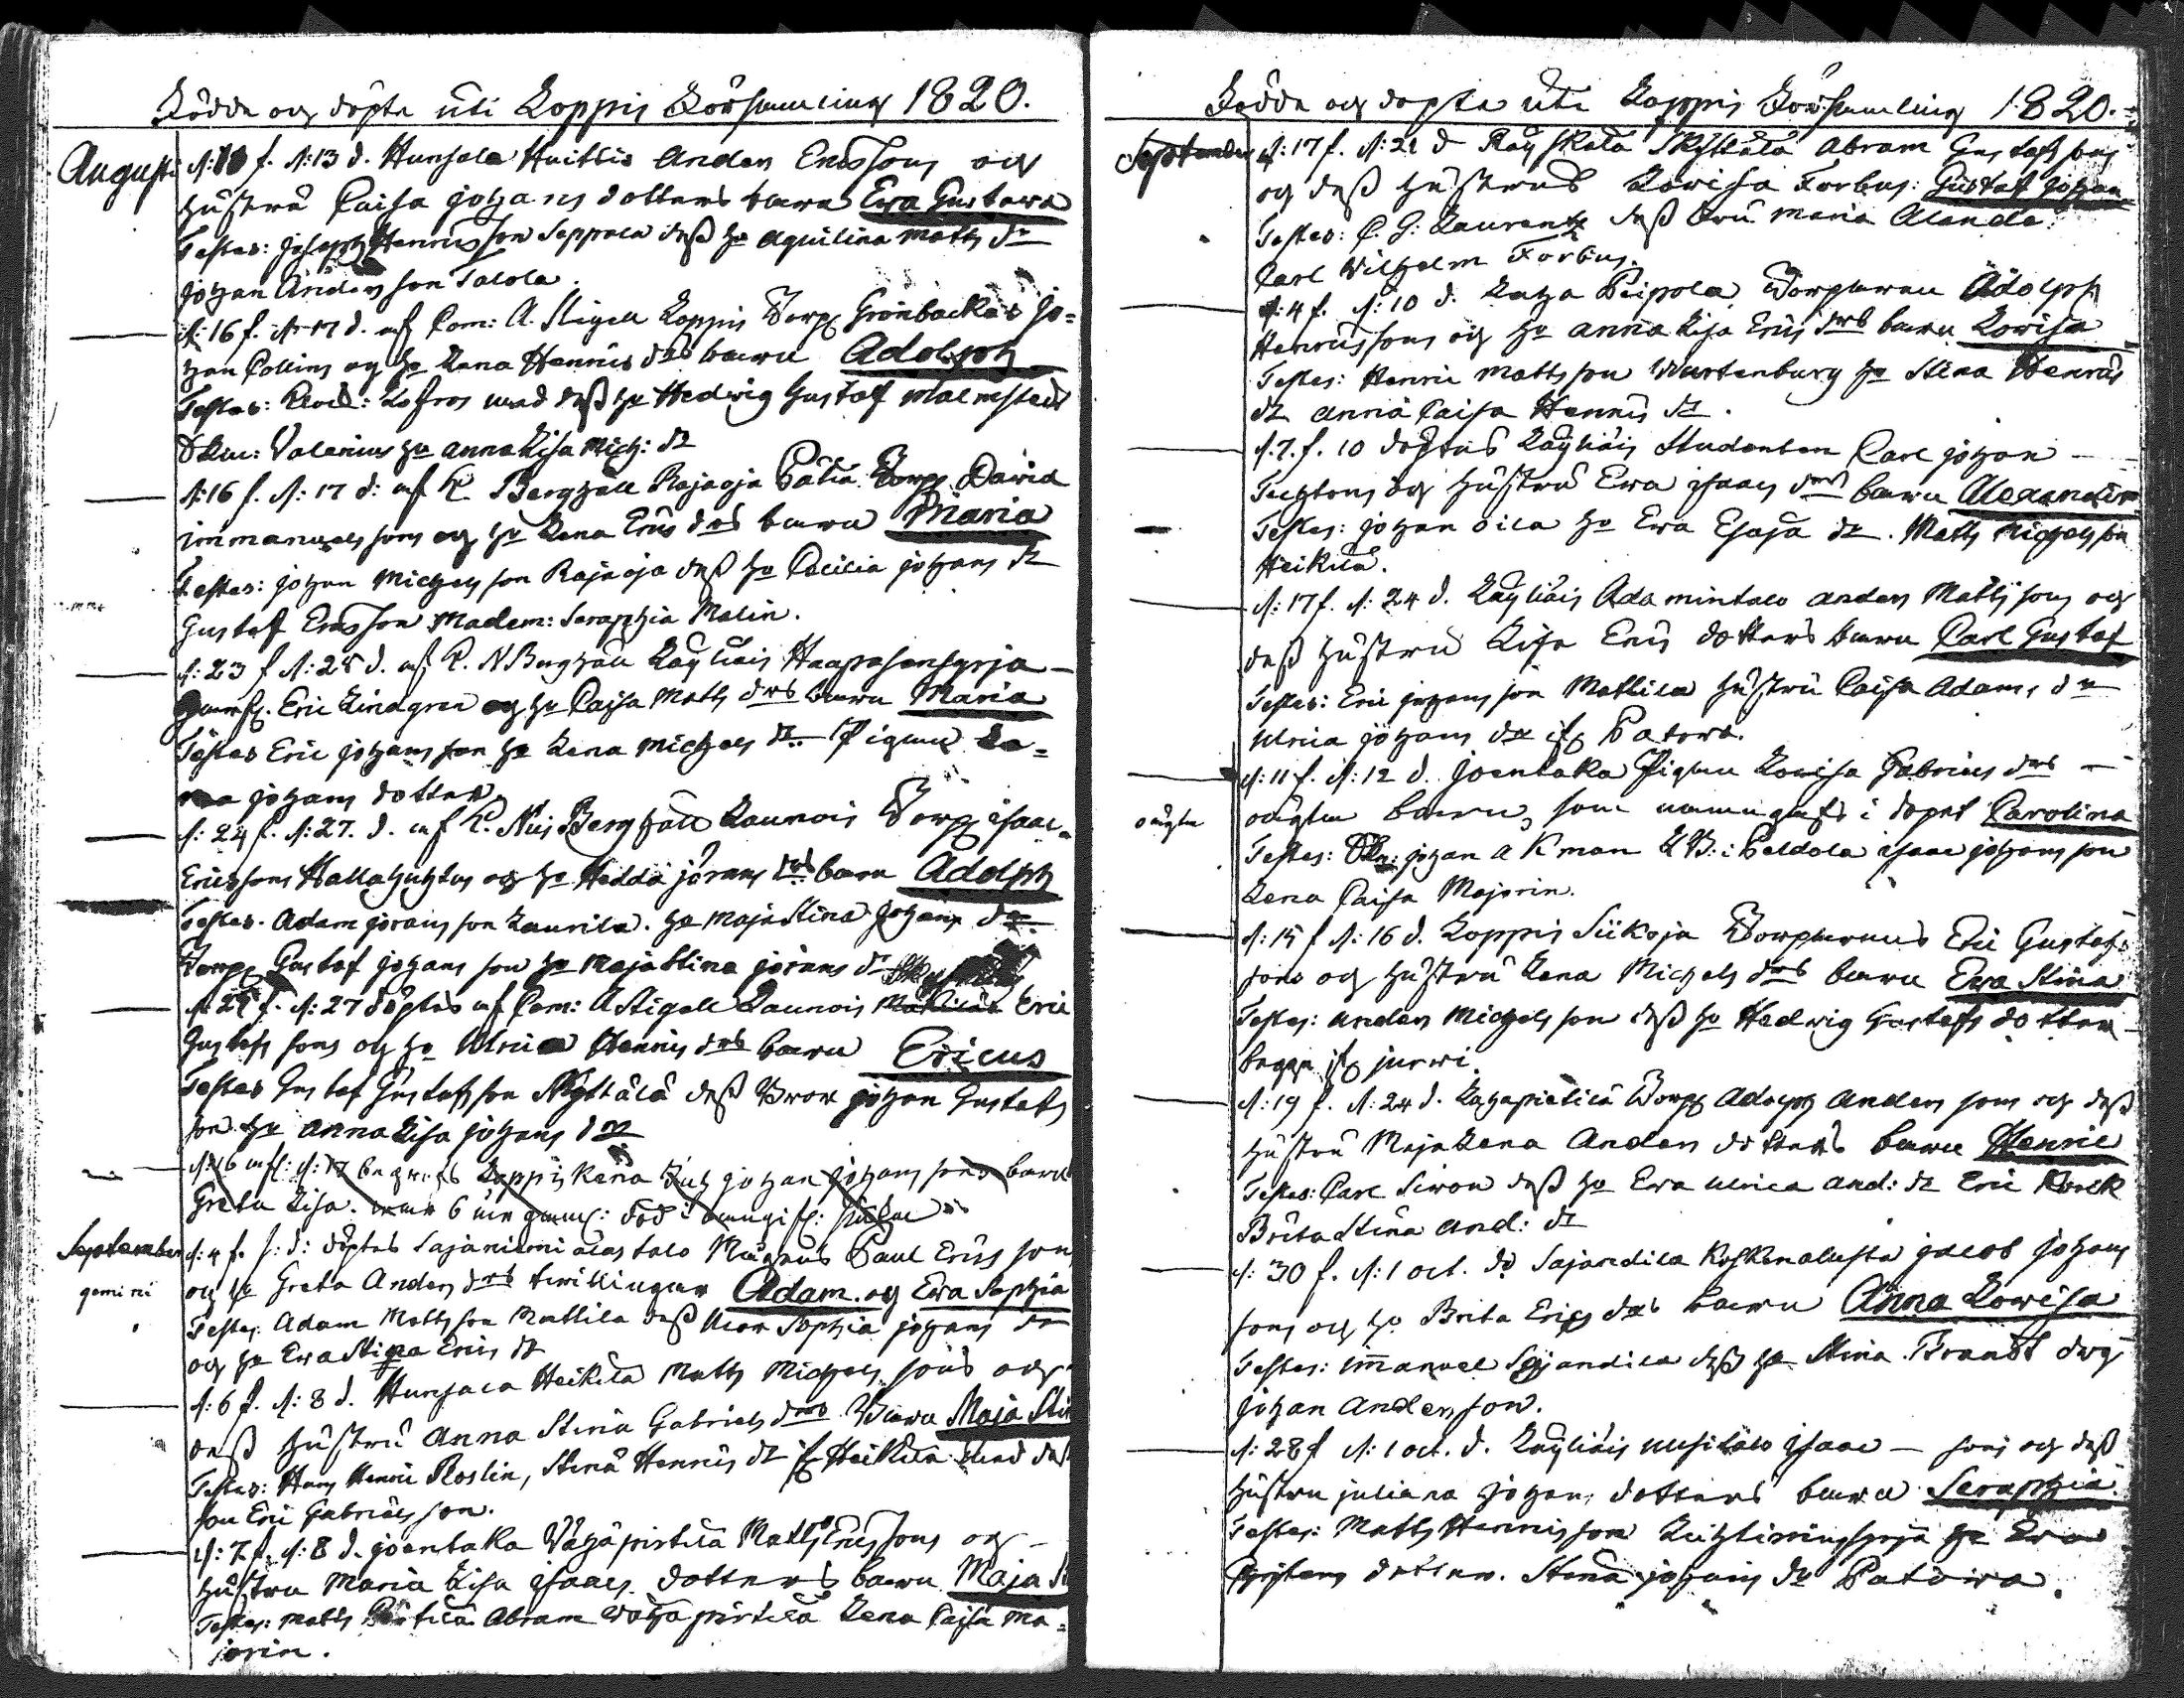 Födde och döpte uti Loppis Församling 1820.
Augusti d: 10 f. d: 13 d. Hunsala Huittis Anders Ericssons och
hustru Caisa Johans dotters barn Ewa Gustawa
Testes: Joseph Henricsson Seppälä dess ho Aquilina Matts dr
Johan Andersson Talola.
d: 16 f. d: 17 d. af Com: A. Stigell Loppis Torp: Grönbackas Jo=
han Collins och ho Lena Henrics drs barn Adolph
Testes: Lofros med dess ho Hedwig Gustaf Malmstedt
Valerius ho Anna Lisa Mich: dr
d: 16 f. d: 17 d: af C. Berghäll Rajaoja Torp: David
Immanuelssons och ho Lena Erics drs barn Maria
Testes: Johan Michelsson Rajaoja dess ho Cecilia Johans dr
Gustaf Ericsson Madem: Seraphia Malin.
d: 23 f d: 25 d. af C. N Berghäll Läyliäis Haapasensyrjä
Eric Lindgren och ho Caisa Matts drs barn Maria
Testes Eric Johansson ho Lena Michels dr. Pigan Le=
na Johans dotter.
d: 24 f. d: 27. d. af C. Nils Berghäll Launois Torp: Isaac
Ericssons Hallahuhtas och ho Hedda Jörans drs barn Adolph
Testes. Adam Jöransson Laurila. ho Maja Stina Johans dr.
Torp: Gustaf Johansson ho Maja Stina Jörans dr
d: 24 f. d: 27 döptes af Com: A Stigell Launois Eric
Gustafssons och ho Ulrica Henrics drs barn Ericus
Testes Gustaf Gustafsson Nyttälä dess Bror Johan Gustafs
son ho Anna Lisa Johans dr
d: 16 d: 17 begrofs Loppis Johan Johanssons barn
Greta Lisa. 6 död
September d: 4 f. döptes Sajaniemi Alastalo Paul Ericsson
gemini och ho Greta Anders drs twillingar Adam. och Ewa Sophia
Testes: Adam Mattsson Mattila dess Mor Sophia Johans dr
och ho Ewa Stina Erics dr
d: 6 f. d: 8 d. Hunsala Heikkilä Matts Michelssons och
dess hustru Anna Stina Gabriels drs Barn Maja Sti
Testes: Henric Roslin, Stina Henrics dr fr Heikkilä
son Eric Gabrielsson.
d: 7 f. d: 8 d. Joentaka Wähäpirtilä Matts Ericssons och
hustru Maria Lisa Isaacs dotters barn Maja S
Testes: Matts Pirtilä Abram Wähäpirtilä Lena Caisa Ma=
jorin.
Födde och döpte uti Loppis Församling 1820.
September d: 17 f. d: 21 d Räyskälä Skyttälä Abram Gustafssons
och dess hustrus Lowisa Forbus: Gustaf Johan
Testes: C. G. Laurentz dess Fru Maria Alande.
Carl Wilhelm Forbus.
d: 4 f. d: 10 d. Pilpola Torparen Adolph
Henricssons och ho Anna Lisa Erics drs barn Lowisa
Testes: Henric Mattsson Wurtenburg ho Stina Henrics
dr Anna Caisa Henrics dr.
d. 7. f. 10 döptes Läyliäis Studenten Carl Johan
och hustru Ewa Isaacs drs barn Alexander
Testes: Johan Oila ho Ewa Esaja dr. Matts Michelsson
Heikkilä.
d: 17 f. d: 24 d. Läyliäis Adamintalo Anders Mattssons och
dess hustru Lisa Erics dotters barn Carl Gustaf
Testes: Eric Johansson Mattila hustru Caisa Adams dr
Ulrica Johans dr fr Patowa.
d: 11 f. d: 12 d. Joentaka Pigan Lowisa Gabriels drs
oägta oägta barn, som namngafs i dopet Carolina
Testes: Johan Akman Peldola Isaac Johansson
Lena Caisa Majorin.
d: 15 f d: 16 d. Loppis Siikoja Torparens Eric Gustafs
sons och hustru Lena Michels drs barn Ewa Stina
Testes: Anders Michelsson dess ho Hedwig Gustafs dotter
bägge fr Jurwi.
d: 19 f. d: 24 d. Torp: Adolph Anderssons och dess
hustru Maja Lena Anders dotters barn Henric
Testes: Carl Siwon dess ho Ewa Ulrica And: dr Eric
Brita Stina And: dr
d: 30 f. d: 1 oct. d Sajandila Koskenalusta Jacob Johans
sons och ho Brita Erics drs barn Anna Lowisa
Testes: Immanuel Sajandila dess ho Stina Brandt
Johan Andersson.
d: 28 f d: 1 oct. d. Läyliäis Uusitalo Isaac — sons och dess
hustru Juliana Johans dotters barn Seraphia.
Testes: Matts Henricsson ho Ewa
dotter. Stina Johans dr Patowa.